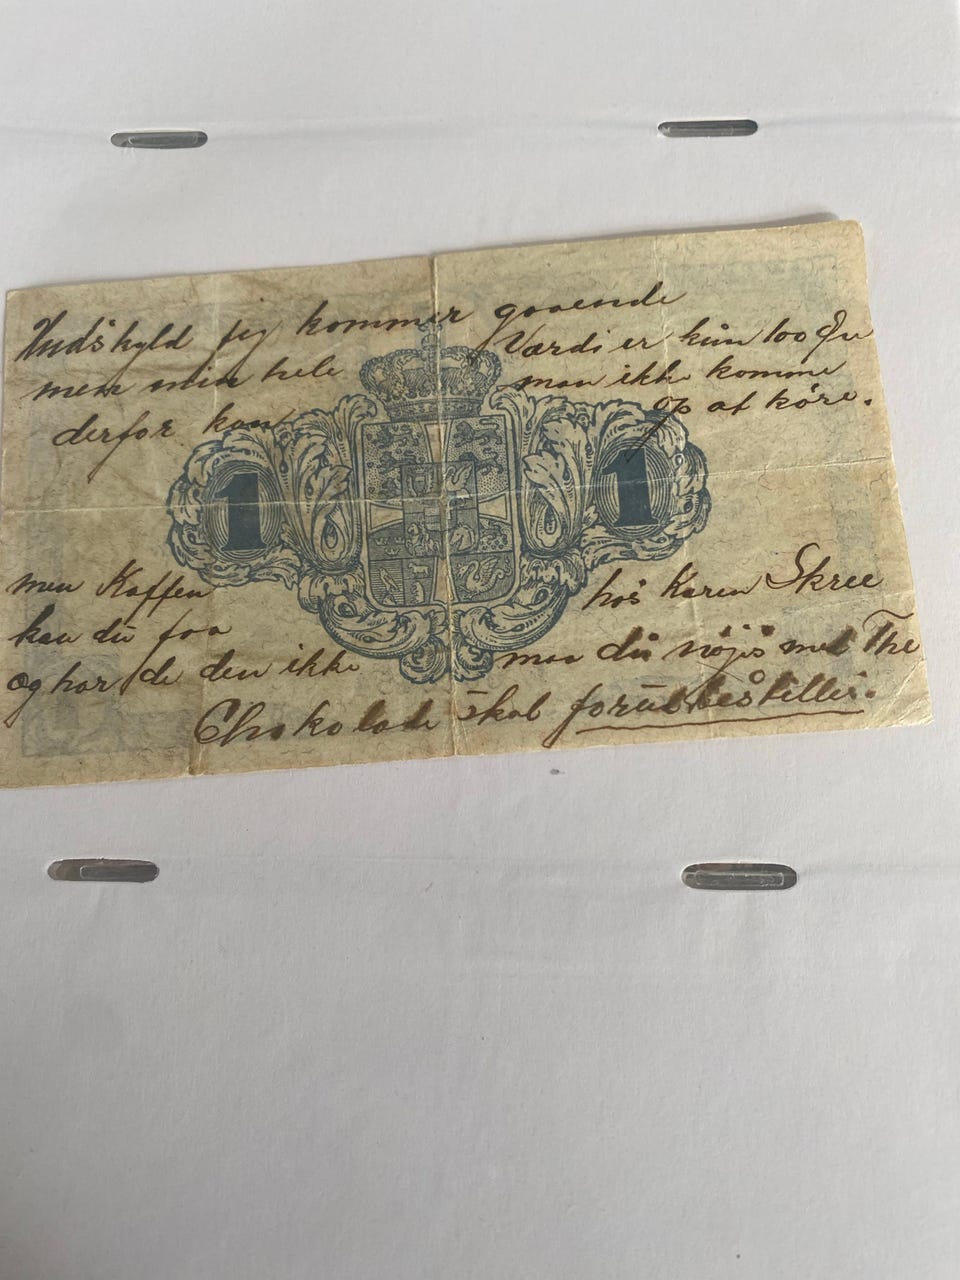 Undskyld jeg kommer gaaende
men min hele Værdi er kun 100 Øre
derfor kan man ikke komme
op at køre.
1 1
men Kaffen
kan du faa hos Karen Skree
og har de den ikke maa du nøjes med The
Chokolade skal forudbestilles.